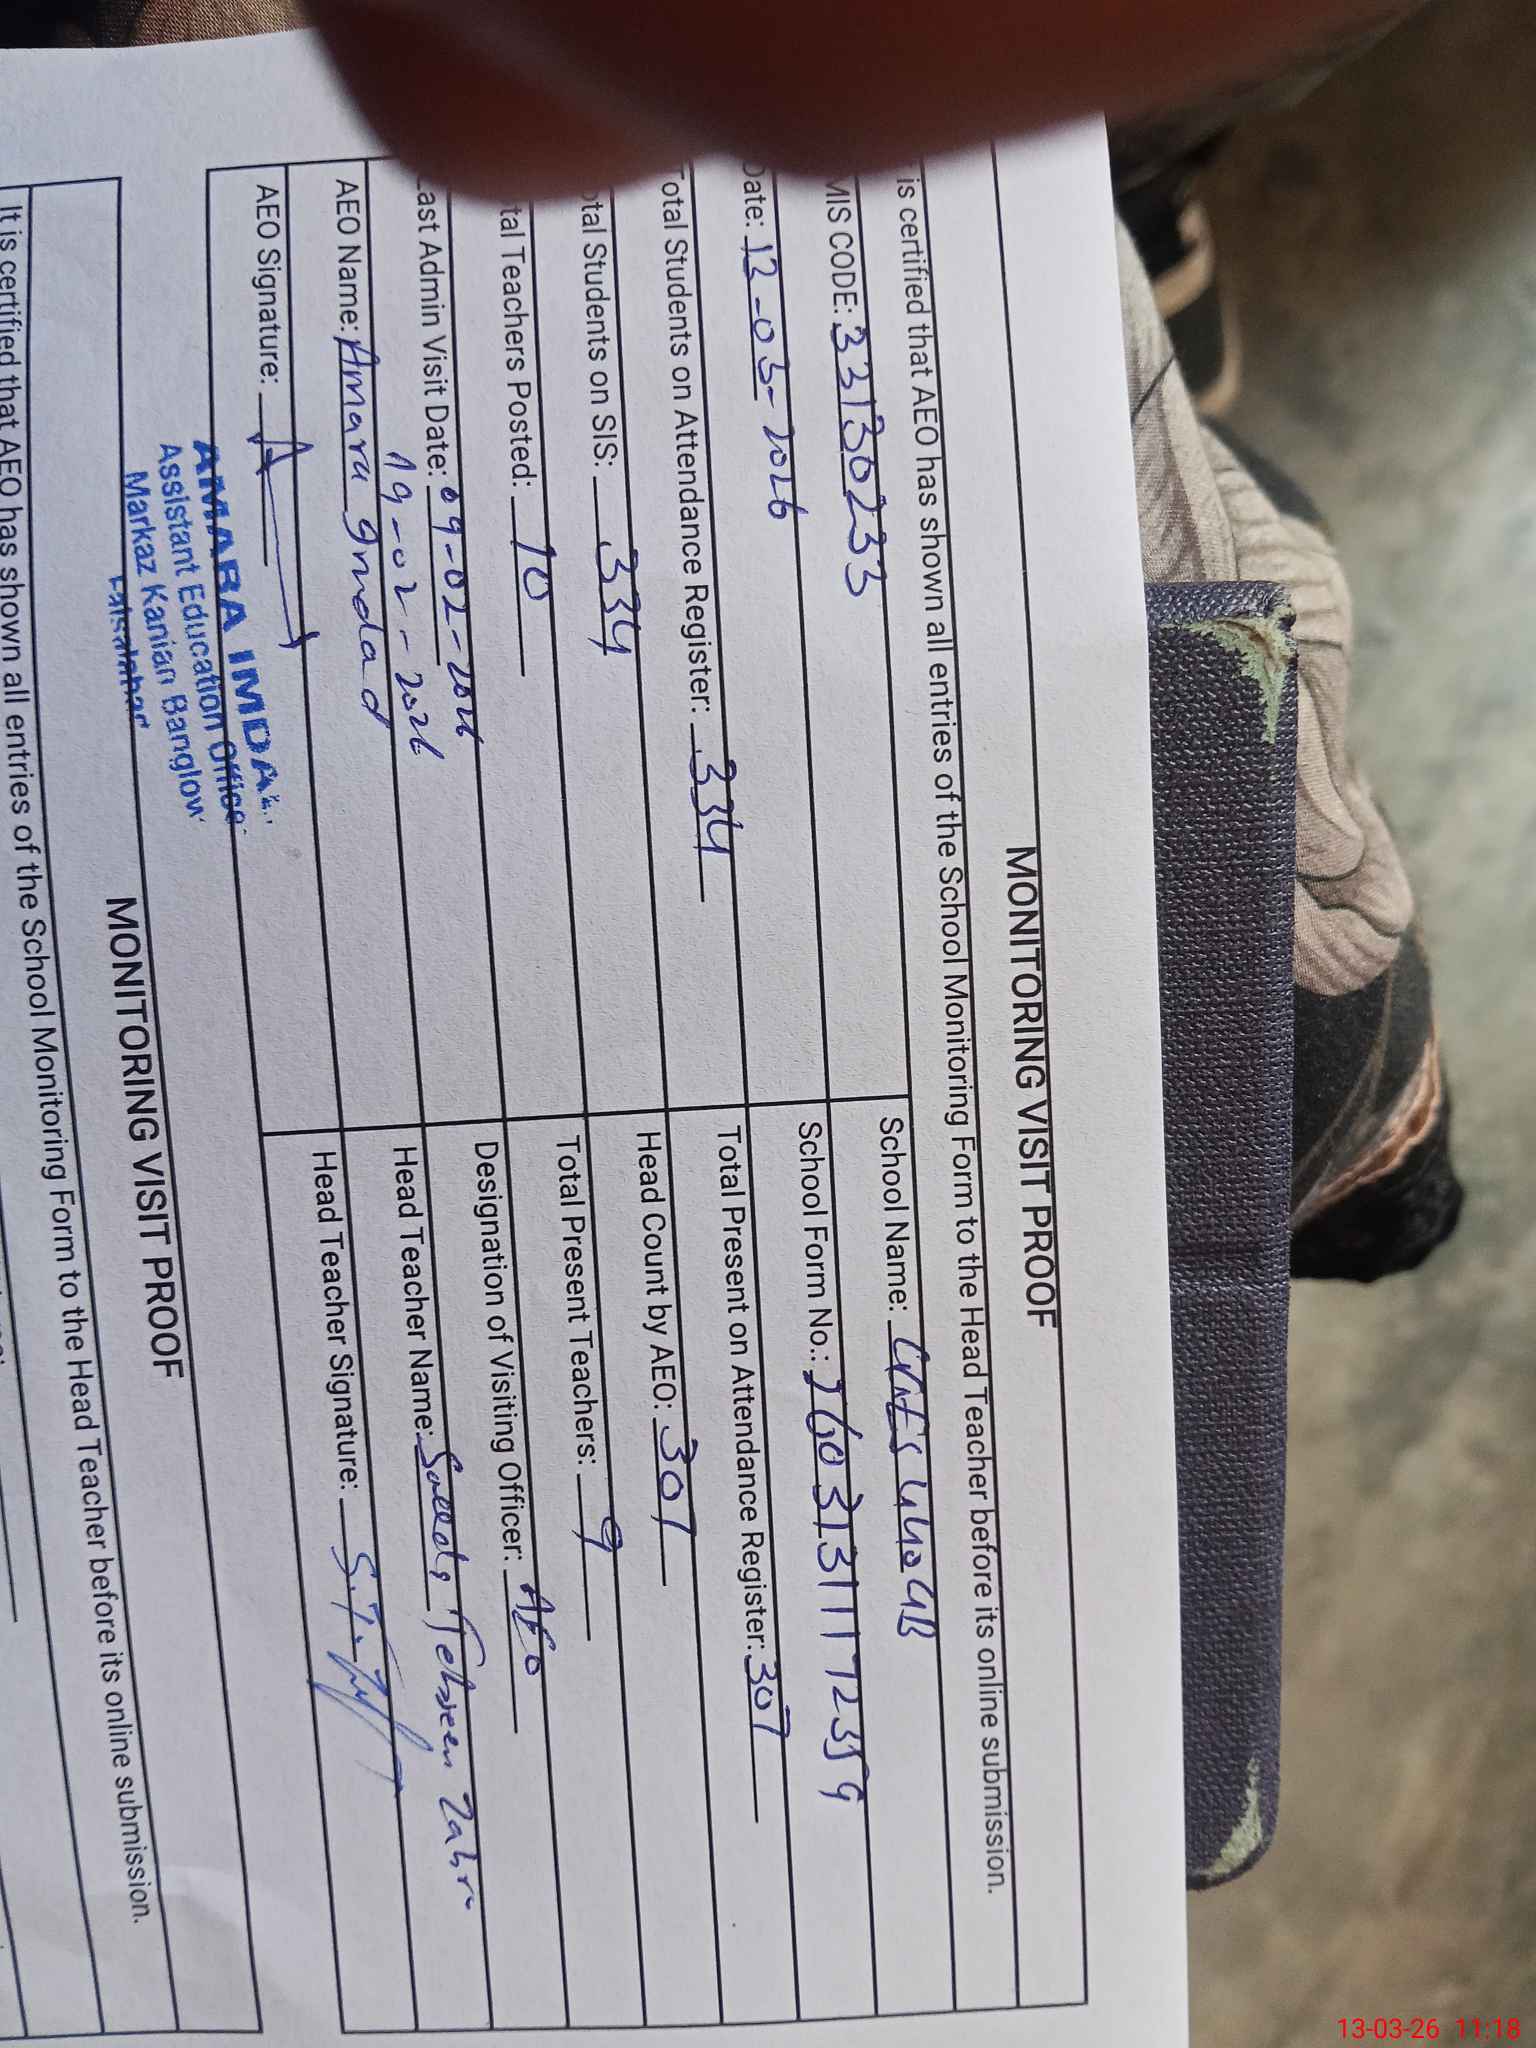 MONITORING VISIT PROOF
is certified that AEO has shown all entries of the School Monitoring Form to the Head Teacher before its online submission.
MIS CODE: 33130233 School Name: 440 GB
Date: 12-03-2026 School Form No.:
Total Students on Attendance Register: 334 Total Present on Attendance Register: 307
otal Students on SIS: 334 Head Count by AEO: 307
tal Teachers Posted: 10 Total Present Teachers: 9
Last Admin Visit Date: 09-02-2026 Designation of Visiting Officer: AEO
19-02-2026
AEO Name: Amara Imdad Head Teacher Name: Tehseen Zahra
AEO Signature: Head Teacher Signature:
AMARA IMDA
Assistant Education Office
Markaz Kanian Banglow
Faisalabad
MONITORING VISIT PROOF
It is certified that AEO has shown all entries of the School Monitoring Form to the Head Teacher before its online submission.
13-03-26 11:18